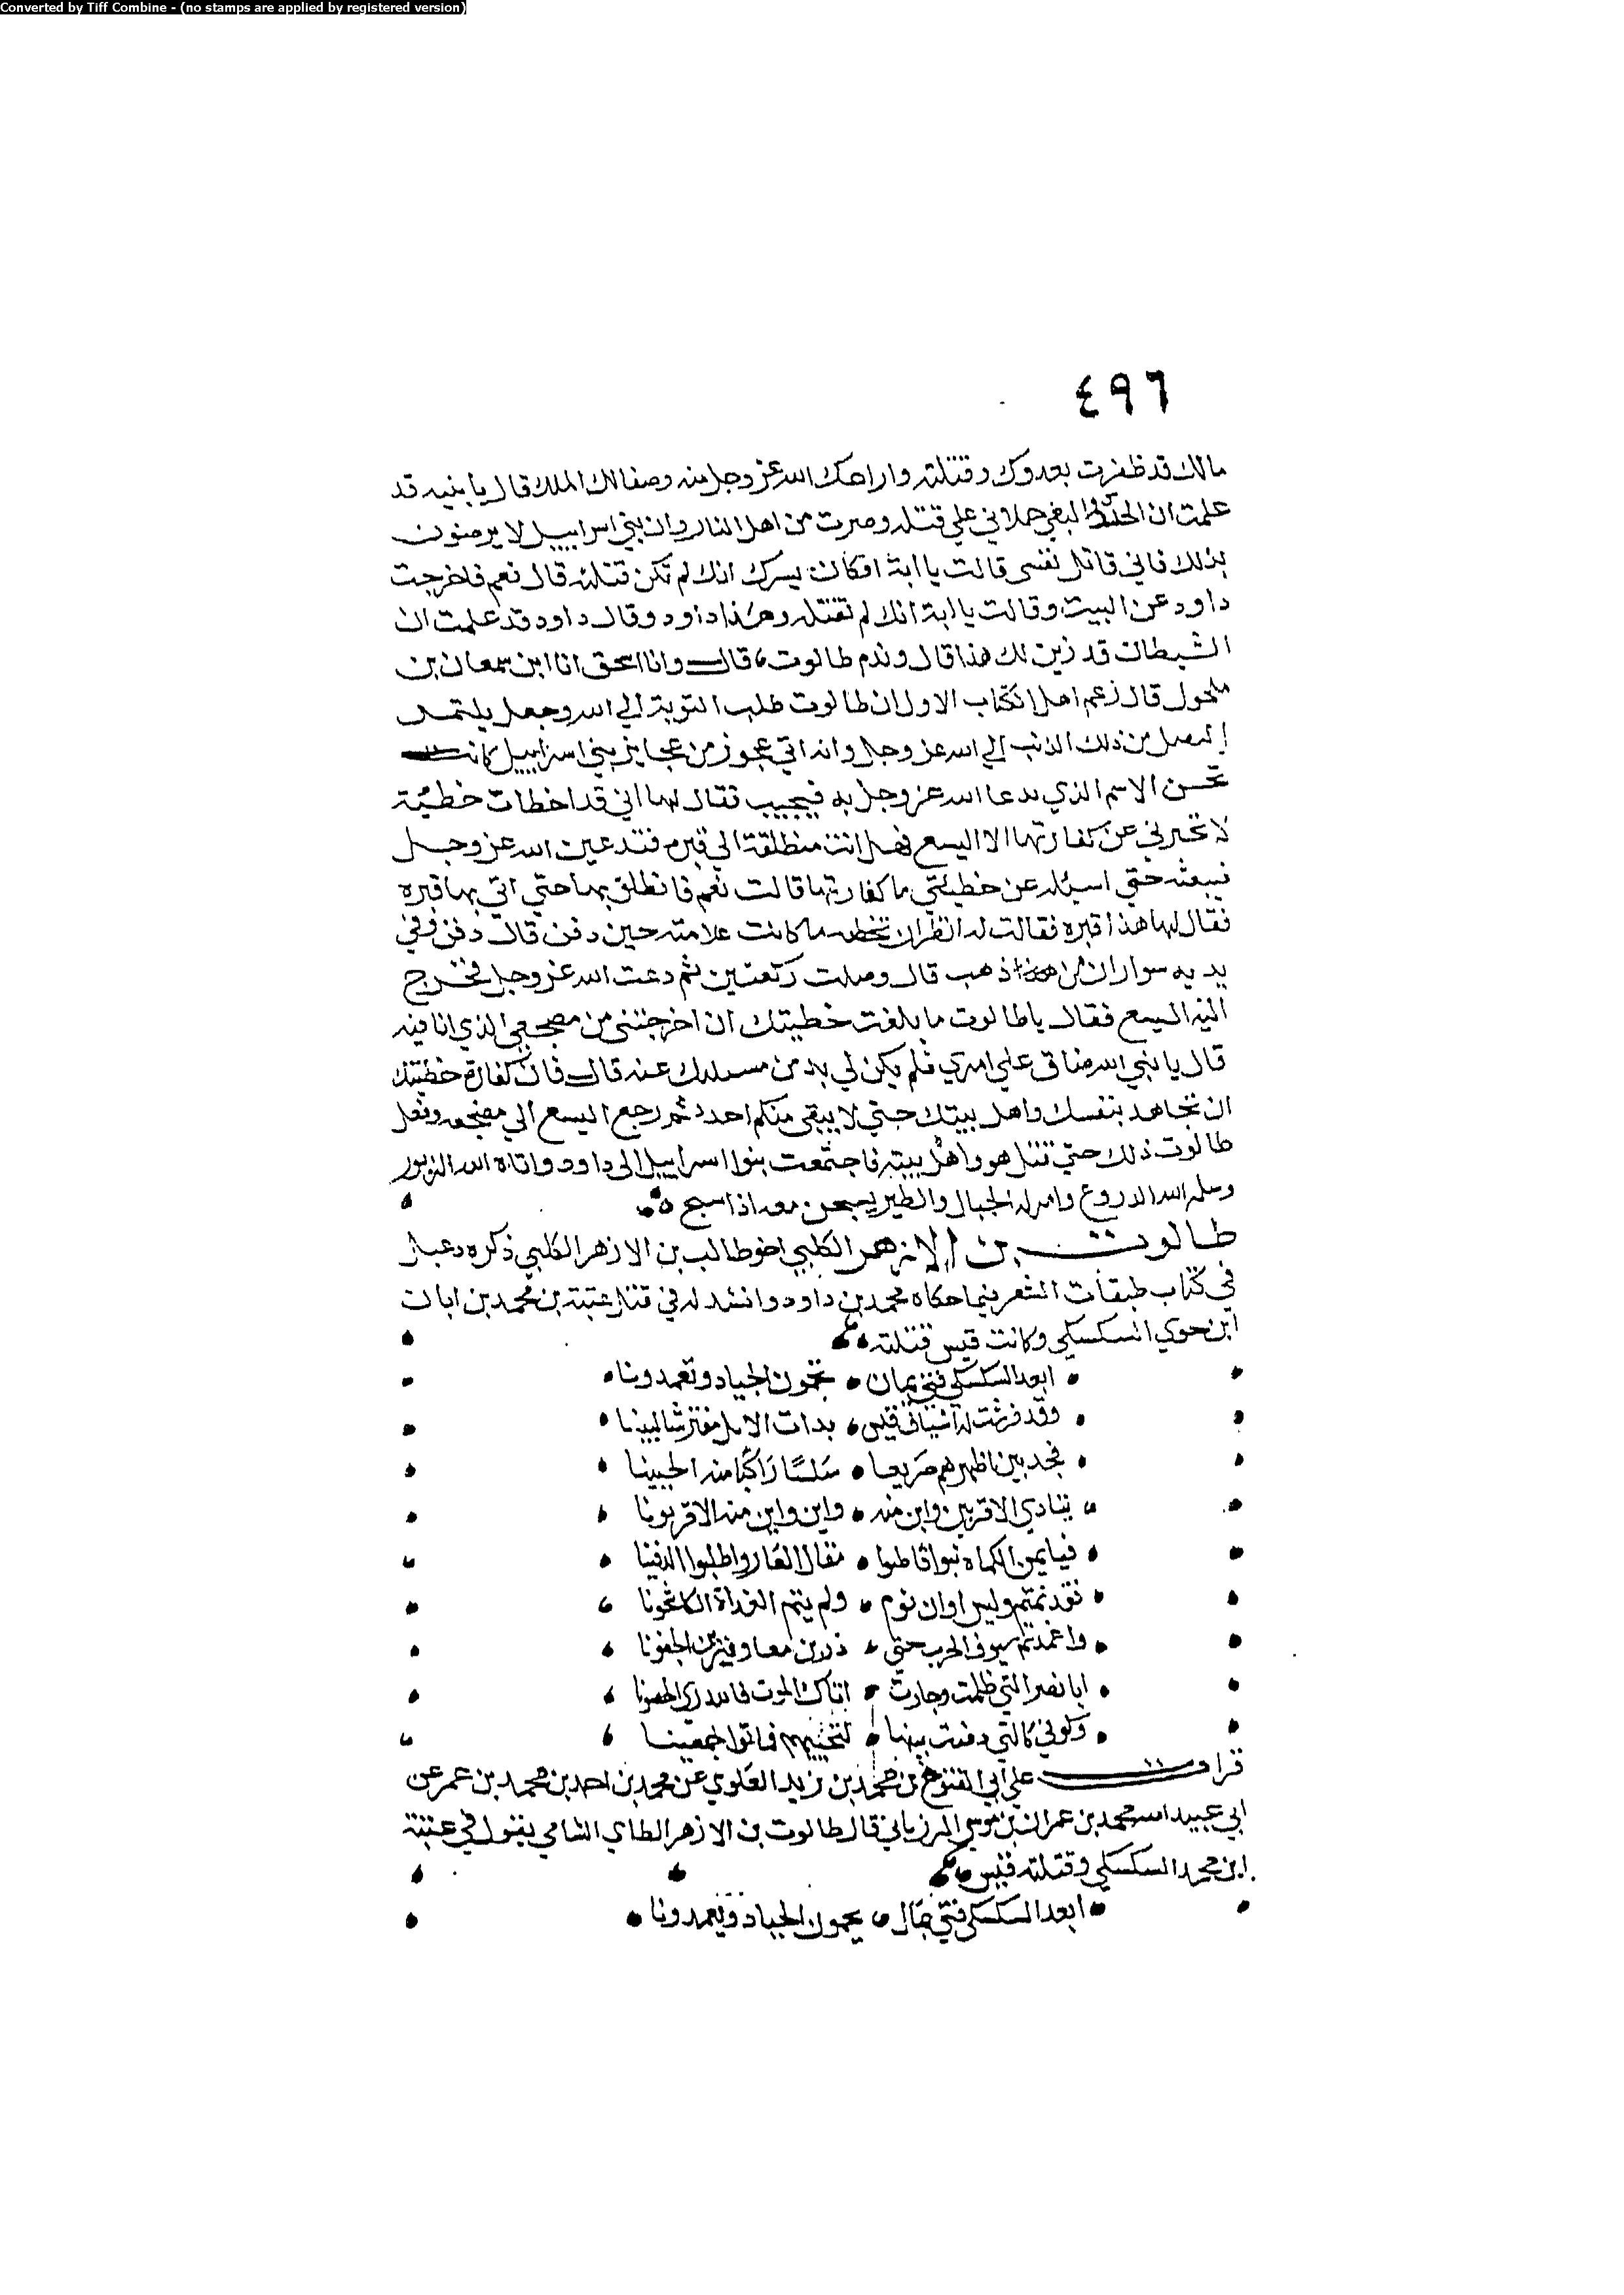 Converted by Tiff Combine - (no stamps are applied by registered version)
٤٩٦
مالك قد ظفرت بعدوك وقتلته واراحك الله عز وجل منه وصفا لك الملك قال يا بنيه قد
علمت ان الحسد والبغي حملاني علي قتله وصرت من اهل النار وان بني اسراييل لا يرضون
بذلك فاني قاتل نفسي قالت يا ابة افكان يسرك انك لم تكن قتلته قال نعم فاخرجت
داود عن البيت وقالت يا ابة انك لم تقتله وهذا داود وقال داود قد علمت ان
الشيطان قد زين لك هذا قال وندم طالوت قال وانا اسحق انا ابن سمعان بن
ملحول قال زعم اهل الكتاب الاول ان طالوت طلب التوبة الي الله وجعل يلتمس
التنصل من ذلك الذنب الي الله عز وجل وانه اتي عجوز من عجايز بني اسراييل كانت
تحسن الاسم الذي يدعا الله عز وجل به فيجيب فقال لها اني قد اخطات خطئية
لا تخبرني عن كفارتها الا اليسع فهل انت منطلقة الي قبره فتدعين الله عز وجل
فيبعثه حتي اسيله عن خطيئتي ما كفارتها قالت نعم فانطلق بها حتي اتي بها قبره
فقال لها هذا قبره فقالت له انظر ان تخطه ما كانت علامته حين دفن قال دفن وفي
يديه سواران من ذهب قال وصلت ركعتين ثم دعت الله عز وجل فخرج
اليه اليسع فقال يا طالوت ما بلغت خطيتك ان اخرجتني من مضجعي الذي انا فيه
قال يا نبي الله ضاق علي امري فلم يكن لي بد من مسلتك عنه قال فان كفارة خطيتك
ان تجاهد بنفسك واهل بيتك حتي لا يبقي منكم احد ثم رجع اليسع الي مضجعه وفعل
طالوت ذلك حتي قتل هو واهل بيته فاجتمعت بنوا اسراييل الى داود واتاه الله الزبور
وعلمه الله الدروع وامر له الجبال والطير يسبحن معه اذا سبح
طالوت بن الازهر الكلبي اخو طالب بن الازهر الكلبي ذكره دعبل
في كتاب طبقات الشعر فيما حكاه محمد بن داود وانشد له في قتل عتبة بن محمد بن ابان
ابن حوي السكسكي وكانت قيس قتلته
ابعد السكسكي فتي يمان تحون الجياد وتعمدونا
وقد فرشت له اشياف قيس بدات الاثل مفترشا لبينا
فجد بين اظهرهم صريعا سلسا راكبا منه الجبينا
ينادي الاقربين واين منه واين واين منه الاقربونا
فيا يمن الكماه نبوا قاطبوا ثقال العار واطلبوا الدفينا
فقد نمتم وليس اوان نوم ولم ينم الغداة الكاشحونا
واغمدتم سيوف الحرب حتي ذررن معاوفترمن الجفونا
ابا نصر التي ظلمت وجارت اتاك الموت
وكوني كالتي دفنت بنيها لتحييهم فماتوا اجمعينا
قرات علي ابي الفتوح بن محمد بن زيد العلوي عن محمد بن احمد بن محمد بن عمر عن
ابي عبيد الله محمد بن عمران بن موسي المرزباني قال طالوت بن الازهر الطاي الشامي يقول في عتبة
ابن محمد السكسكي وقتلته قيس
ابعد السكسكي فتي يحمون الجياد وتعمدونا